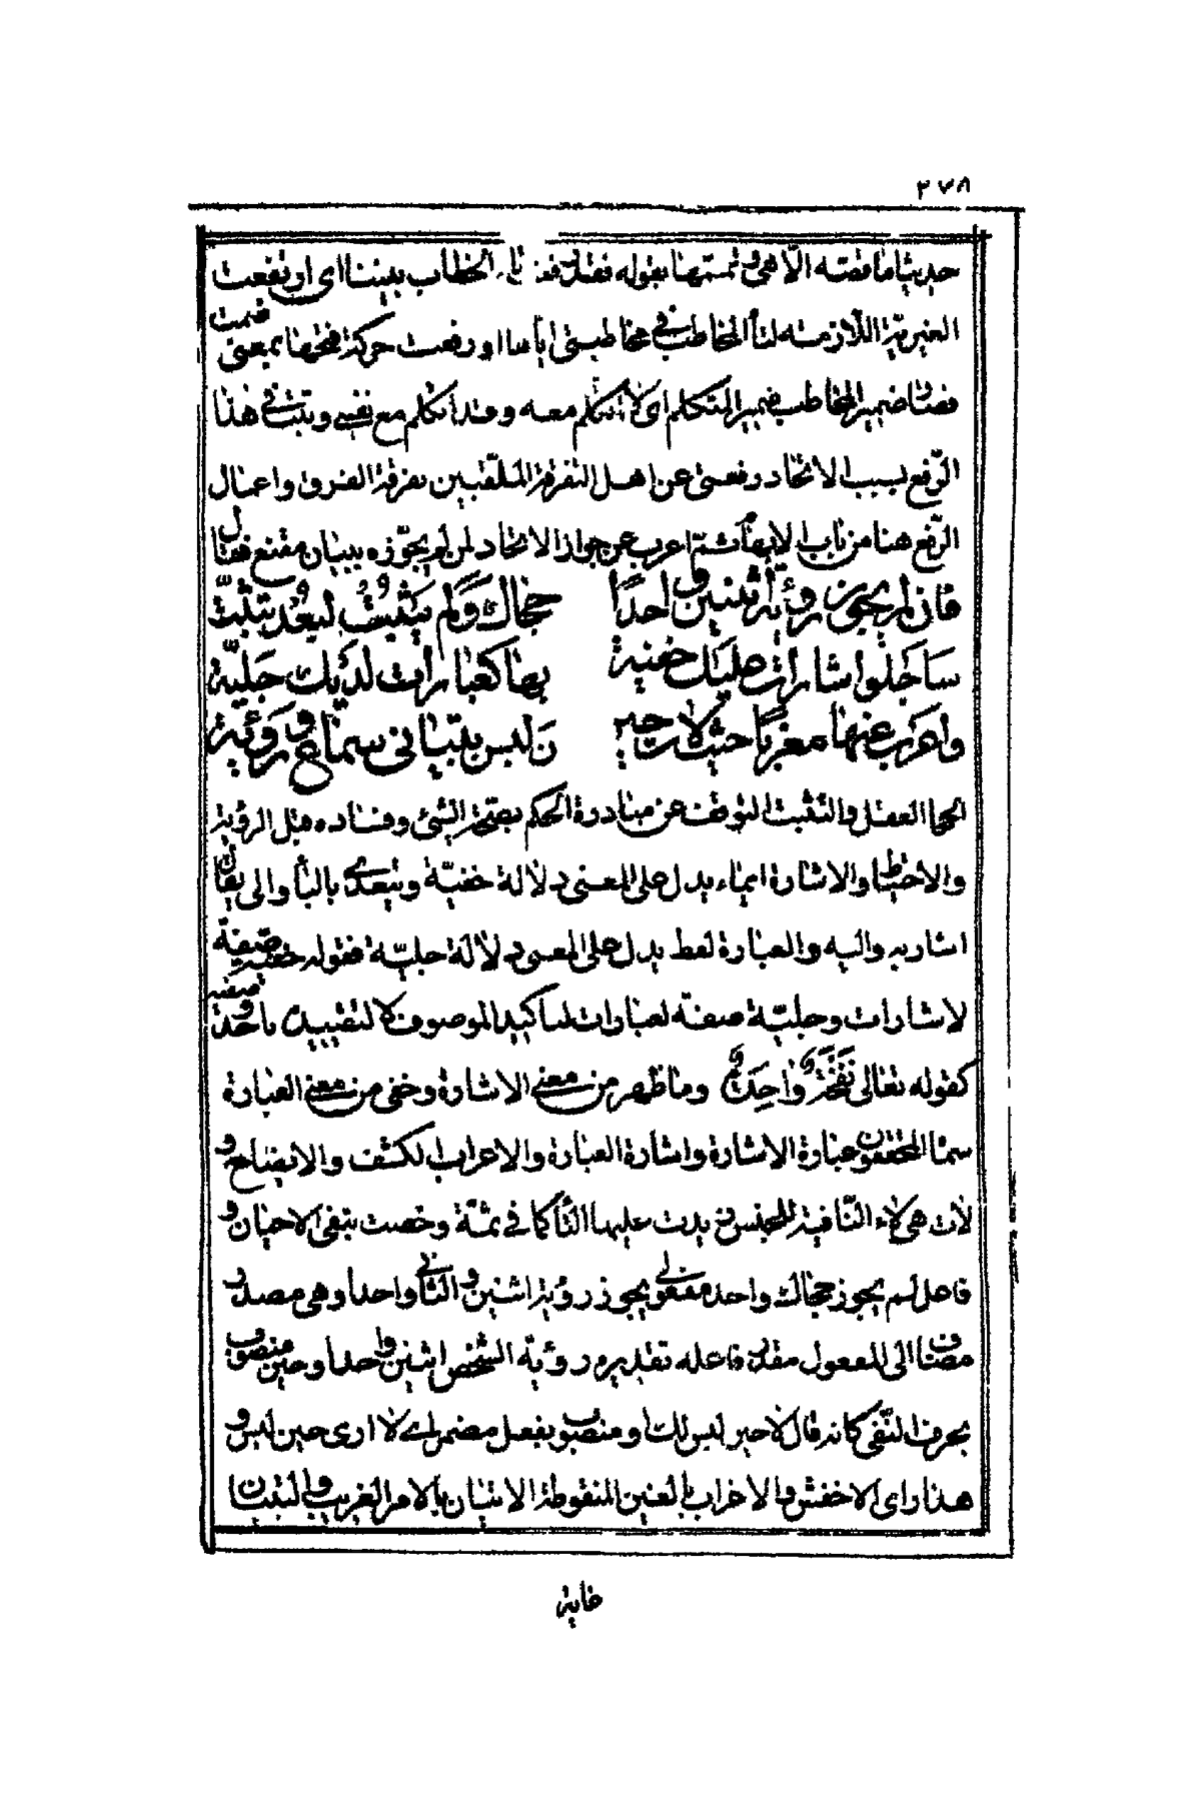 ٢٧٨
حديثا ما قصته الا هي وتمتمها بقوله فقد رفعت تاء الخطاب بيننا اى ارتفعت
الغيرية اللازمة لتاء المخاطب فى مخاطبتى اياها او رفعت حركة فتحها بمعنى ضمت
فصار ضمير المخاطب ضمير المتكلم اى لا تتكلم معه وقد اتكلم مع نفسى وثبت فى هذا
الرفع بسبب الاتحاد رفعتى عن اهل التفرقة الملقبين بفرقة الفرق واعمال
الرفع هنا من باب الايهام ثم اعرب عن جواز الاتحاد لمن لم يجوزه ببيان مقنع فقال
فان لم يجوز رؤية اثنين واحدًا حجاك ولم يثبت لبعد تثبت
ساجلوا شارات عليك خفية بها كعبارات لديك جلية
واعرب عنها مغربًا حيث لات حين لبس بتبيانى سماع ورؤية
الحجا العقل والتثبت التوقف عن مبادرة الحكم بصحة الشئ وفساده قبل الرؤية
والاحتياط والاشارة ايماء يدل على المعنى دلالة خفية ويتعدى بالباء والى يقال
اشار به واليه والعبارة لفظ يدل على المعنى دلالة جلية فقوله خفية صفة
لاشارات وجلية صفة لعبارات لتاكيد الموصوف لا لتقييده بأحد صفتيه
كقوله تعالى نَفْخَةٌ وَاحِدَةٌ وما ظهر من معنى الاشارة وخفى من معنى العبارة
سماه المحققون عبارة الاشارة واشارة العبارة والاعراب الكشف والايضاح و
لات هى لاء النافية للجنس زيدت عليها التاء كما فى ثمة وخصت بنفى الاحيان و
فاعل لم يجوز حجاك واحد مفعولى يجوز رؤية اثنين والثانى واحدا وهى مصدر
مضاف الى المفعول مقدر فاعله تقديره رؤية الشخص اثنين واحدا وحين منصوب
بحرف النفى كانه قال لا حين لبس لك او منصوب بفعل مضمر اى لا ارى حين لبس و
هذا راى الاخفش والاغراب بالغين المنقوطة الاتيان بالامر الغريب والتبيان
غاية